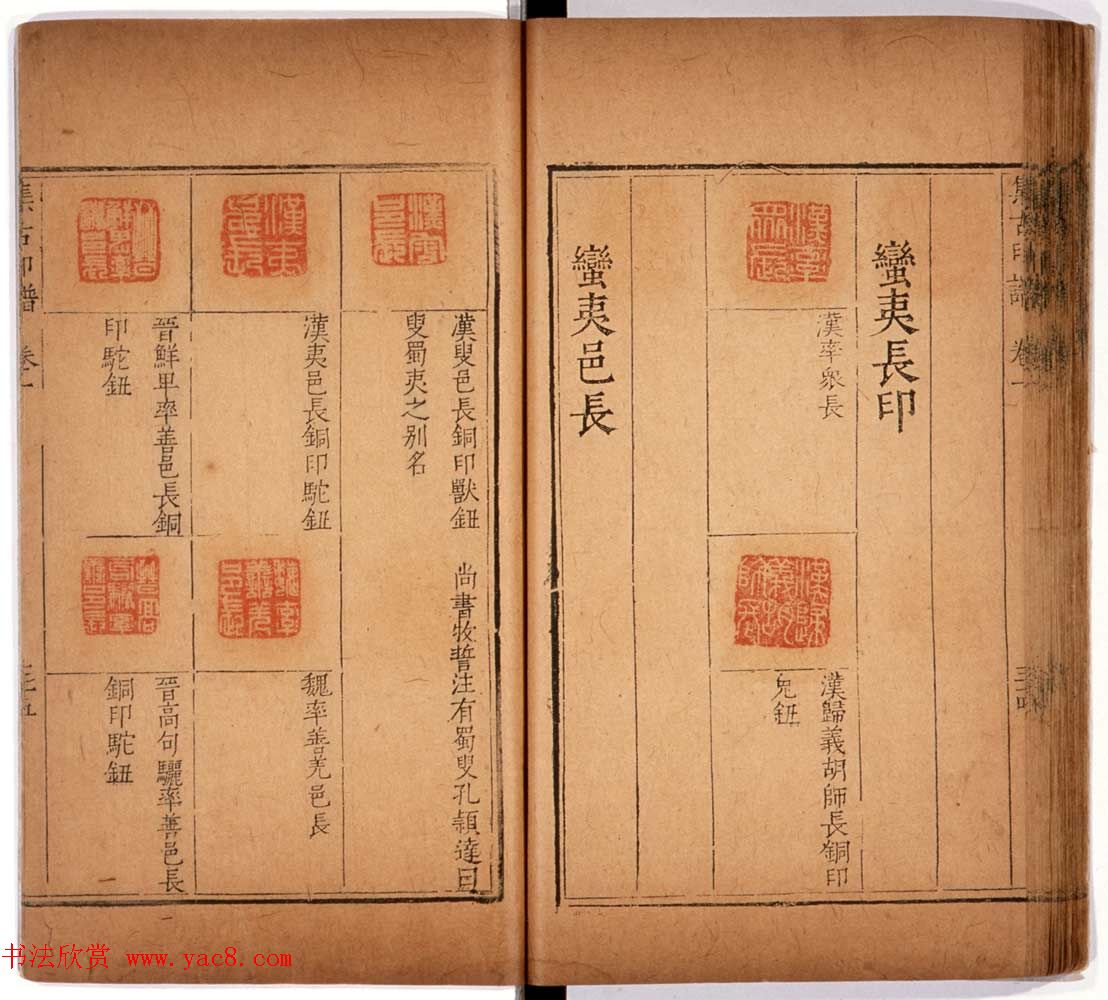 集古印譜 卷
蠻夷長印
漢率衆長
漢歸義胡師長銅印
兔鈕
蠻夷邑長
漢叟邑長銅印獸鈕 尚書牧誓注有蜀叟孔頴達曰
叟蜀夷之别名
漢夷邑長銅印駝鈕
魏率善羌邑長
晉鮮卑率善邑長銅
印駝鈕
晉高句驪率善邑長
銅印駝鈕
集古印譜 卷
书法欣赏 www.yac8.com